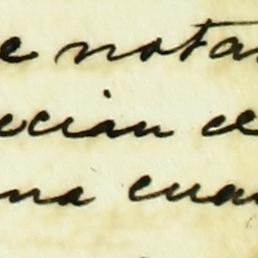 e notar
ecian el
na cuar